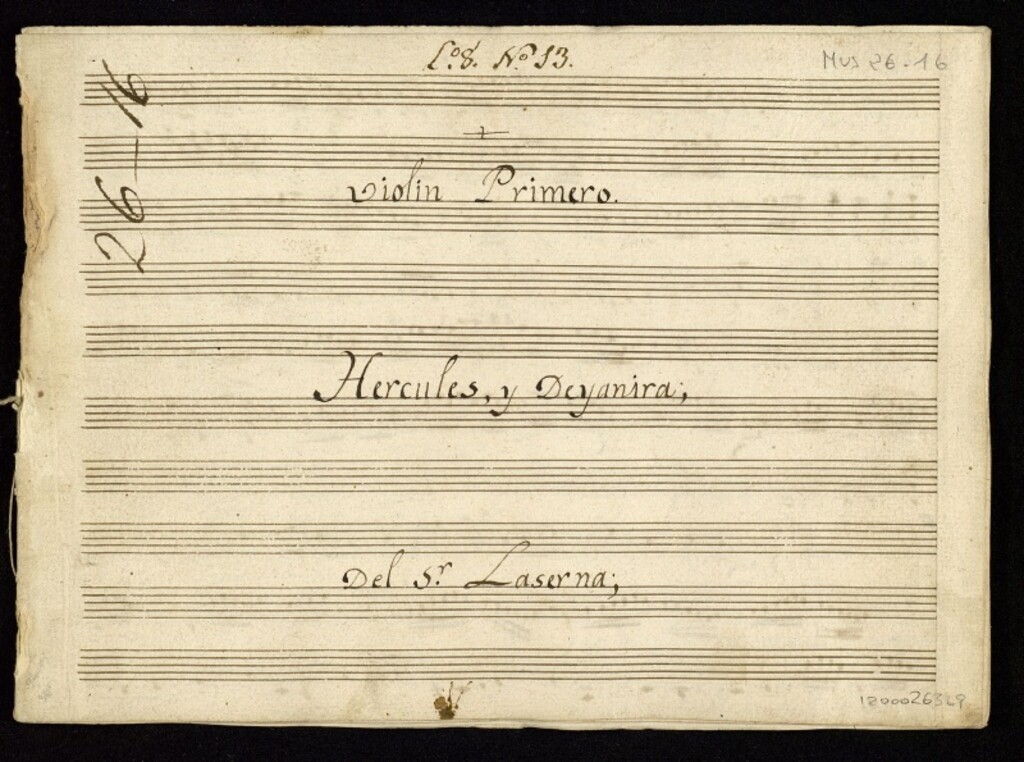 Lº 8. Nº 13.
Mus 26-16
26-16
Violin Primero.
Hercules, y Deyanira;
Del Sr Laserna;